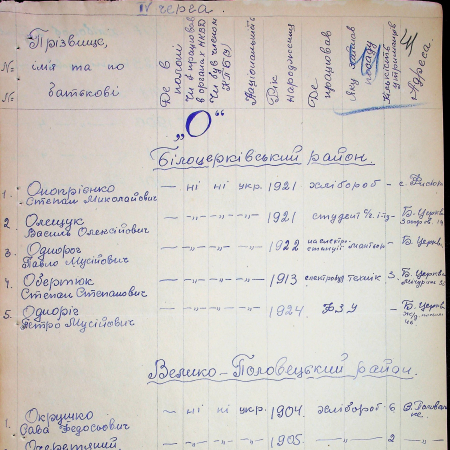 IV черга.
№№ Прізвище, ім'я та по батькові
Де в полоні
Чи в працював в органах НКВД
Чи був членом КПБУ
Національність
Рік народження
Де працював
Яку займав посаду
Кількість утриманців
Адреса
„О"
Білоцерківський район.
1. Оногрієнко Степан Миколайович — ні ні укр. 1921 хлібороб - с.
2. Олещук Василь Олексійович — „ — „ — „ — 1921 студент с/г. - Б. Церква
3. Однорог Павло Мусійович — „ — „ — „ — 1922 на електростанції монтьор - Б. Церква
4. Обертюк Степан Степанович — „ — „ — „ — 1913 технік 3 Б. Церква
5. Одноріг Петро Мусійович — „ — „ — „ — 1924 ФЗУ Б. Церква
Велико-Половецький район.
1. Окрушко Сава Федосьович — ні ні укр. 1904 хлібороб 6
Очеретяний — „ — „ — „ — 1905 — „ — 2 — „ —